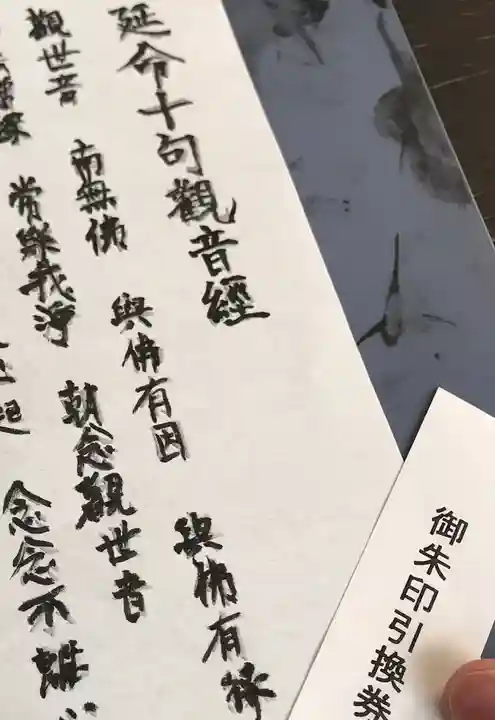 延命十句觀音經
觀世音 南無佛 與佛有因 與佛有緣
僧緣 常樂我淨 朝念觀世音
起 念念不離
御朱印引換券